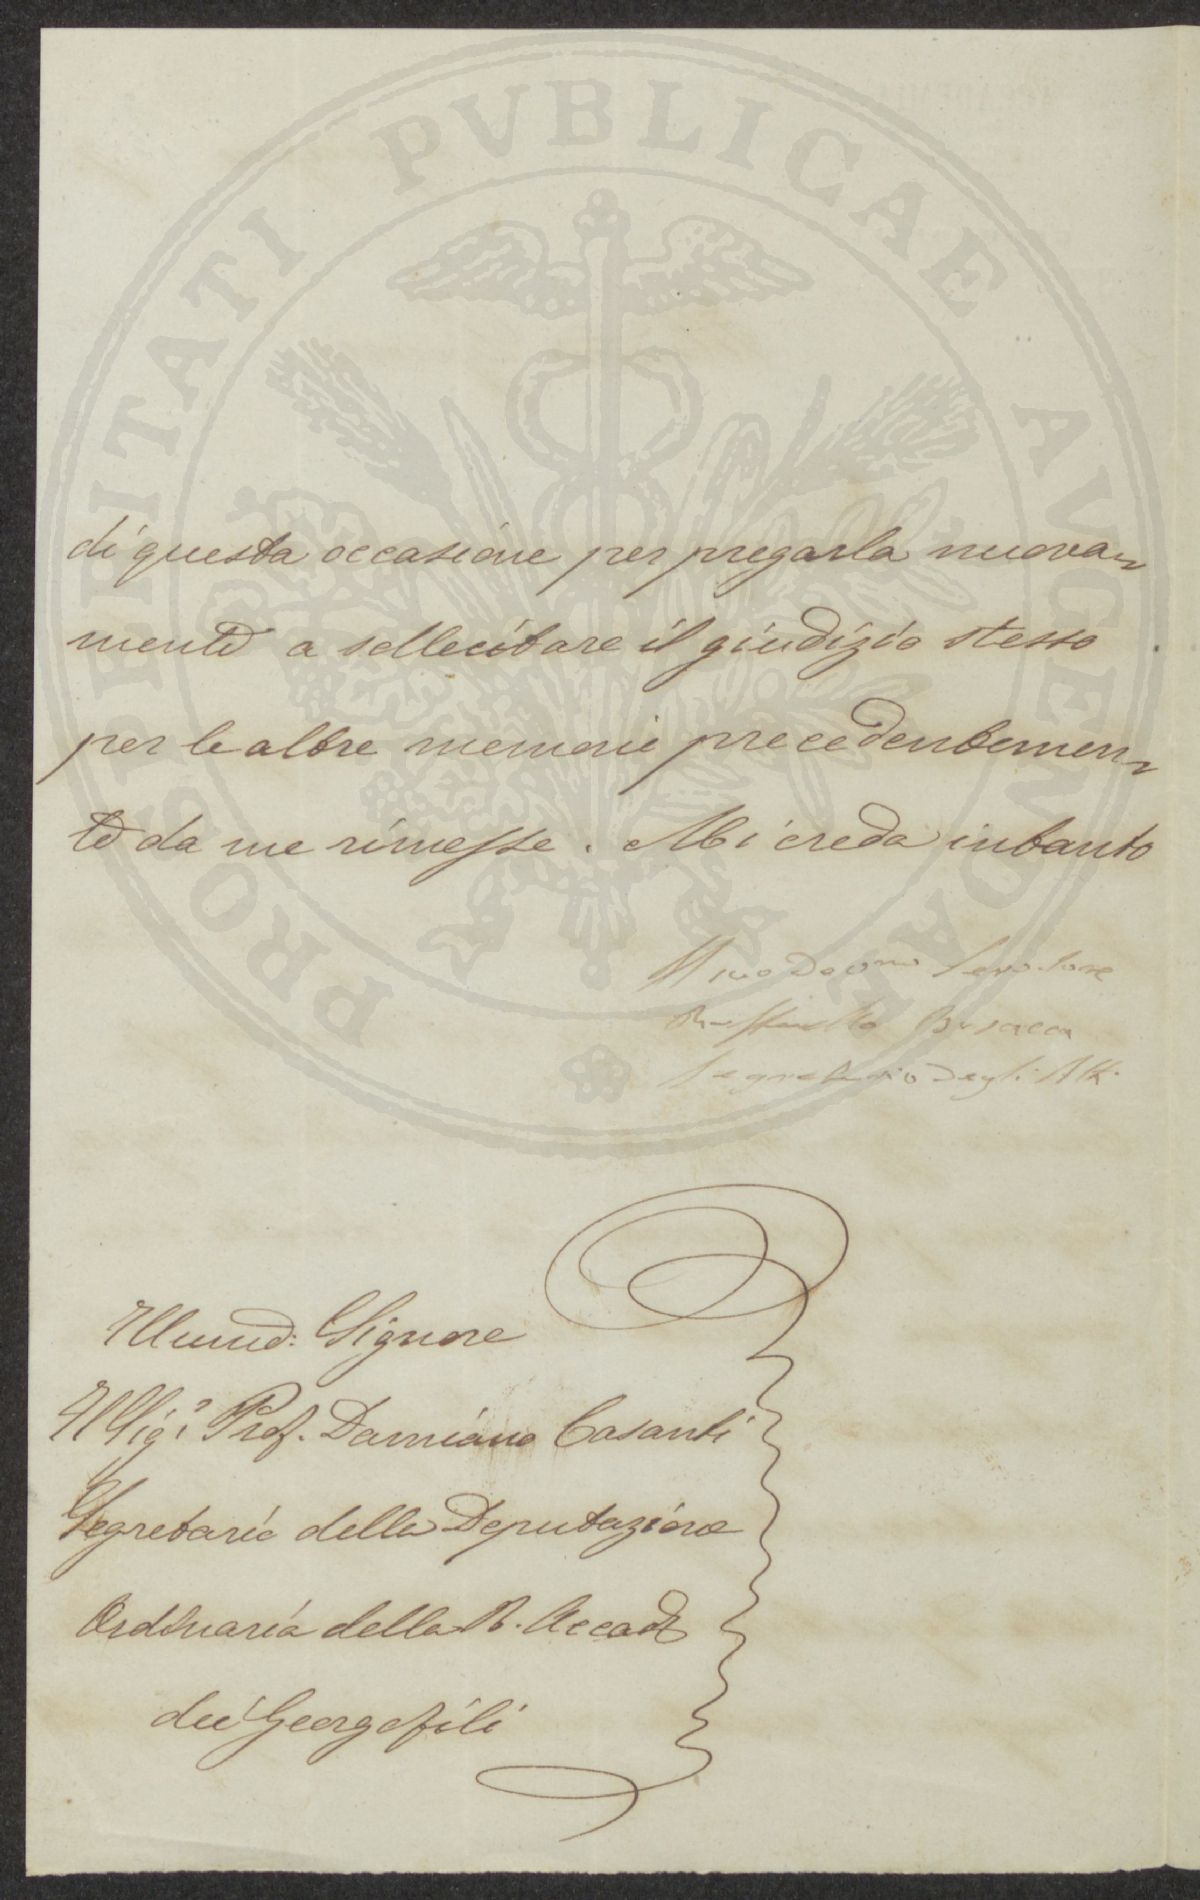 PROSPERITATI PVBLICAE AVGENDAE
di questa occasione per pregarla nuova-
mente a sollecitare il giudizio stesso
per le altre memorie precedentemen-
te da me rimesse. Mi creda intanto
Il suo Devmo Servitore
Raffaello Busacca
Segretario degli Atti
Illumo: Signore
Il Sigr. Prof. Damiano Casanti
Segretario della Deputazione
Ordinaria della R. Accad
dei Georgofili